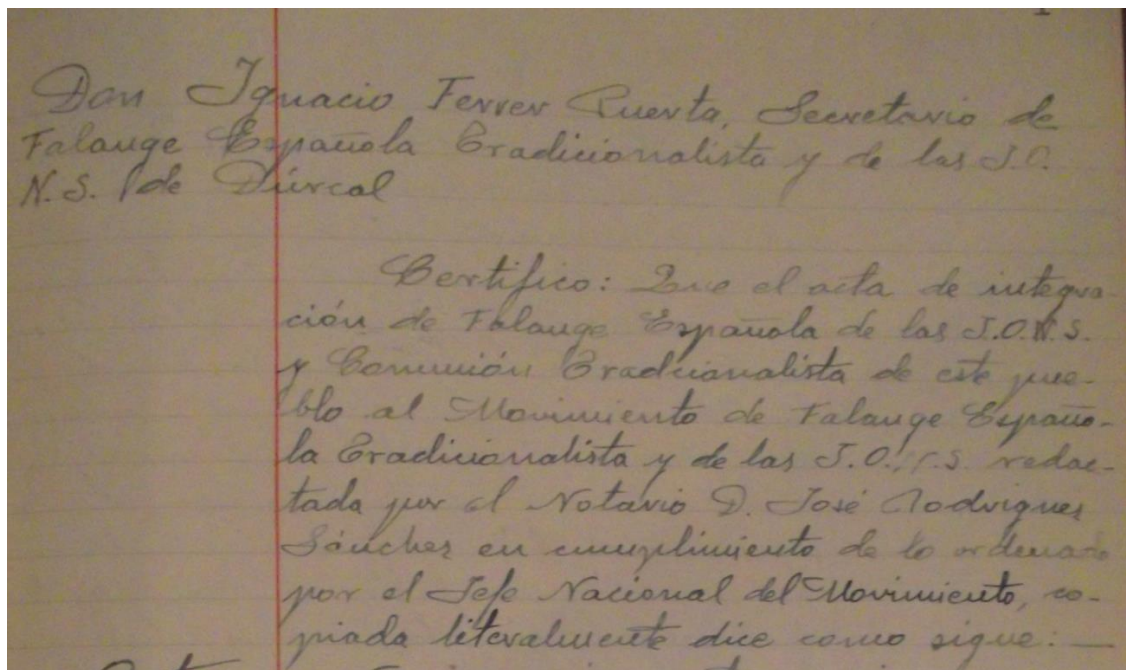 Don Ignacio Ferrer Puerta, Secretario de
Falange Española Tradicionalista y de las J.O.
N.S. de Dúrcal
Certifico: Que el acta de integra
ción de Falange Española de las J.O.N.S.
y Comunión Tradicionalista de este pue-
blo al Movimiento de Falange Españo-
la Tradicionalista y de las J.O.N.S. redac-
tada por el Notario D. José Rodriguez
Sánchez en cumplimiento de lo ordenado
por el Jefe Nacional del Movimiento, co-
piada literalmente dice como sigue: —